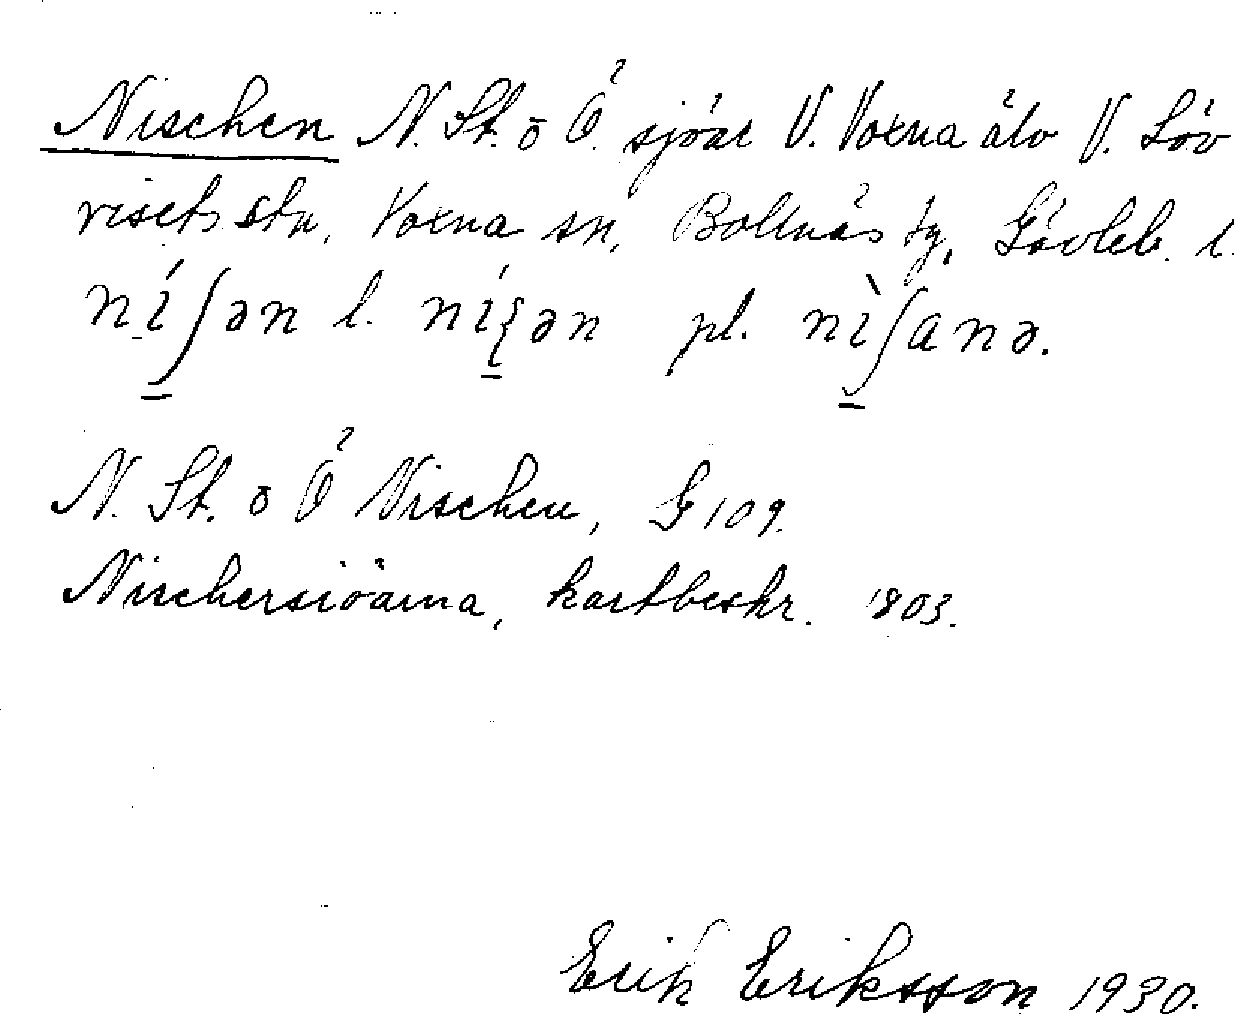 Nischen N. St. o Ö. sjöar V. Voxna älv V. Löv
risets stn, Voxna sn, Bollnäs tg, Gävleb. l.
níʃən l. níξən pl. nìʃanə.
N. St. o Ö Nischen, G 109.
Nischersiöarna, kartbeskr. 1803.
Erik Eriksson 1930.